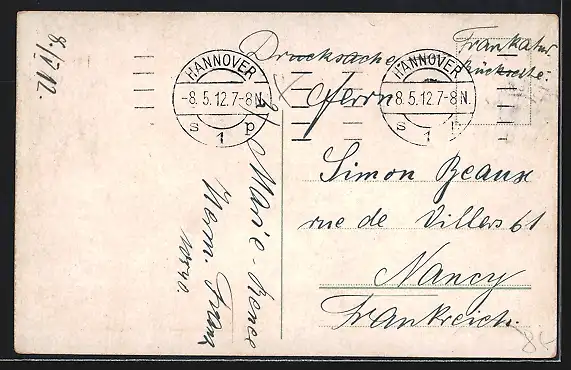 8. IV 12.
Drucksache
Frankatur
Rückseite.
HANNOVER
-8.5.12.7-8N.
s 1 p
HANNOVER
8.5.12.7-8N.
s 1 p
Herrn
Simon Beaux
rue de Villers 61
Nancy
Frankreich.
Marie-Renée
Herm.
84